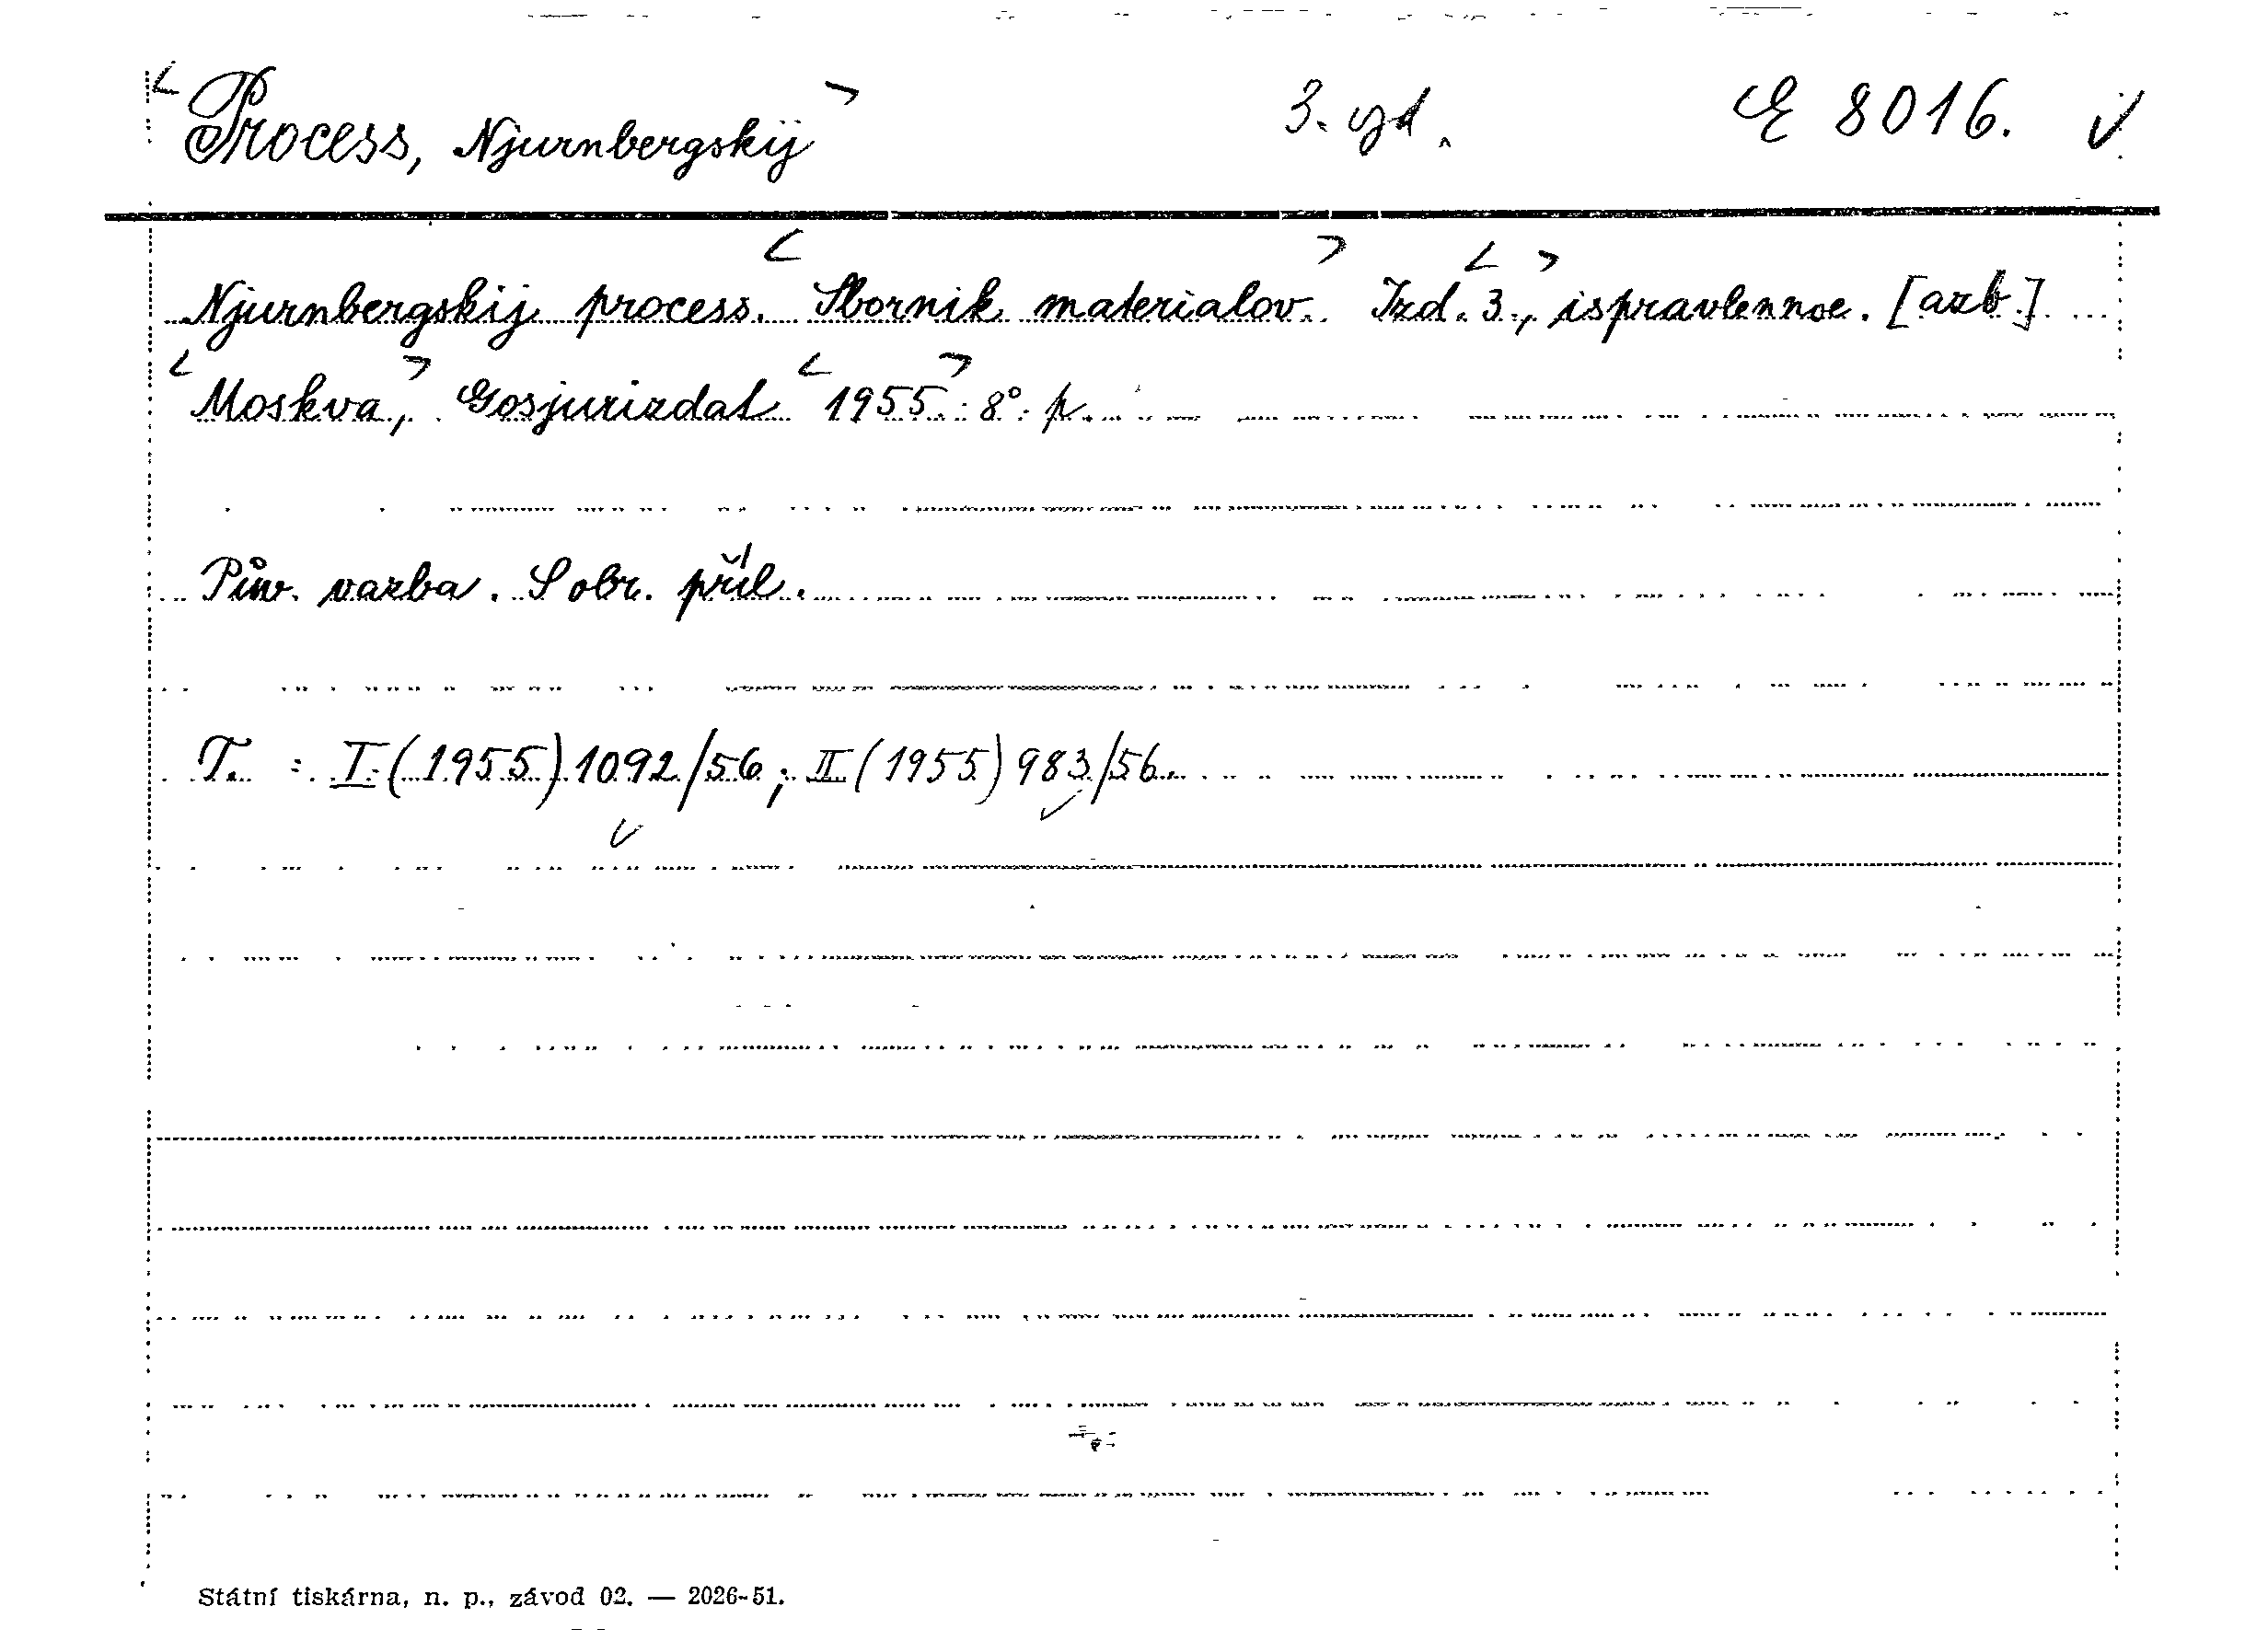 <Process, Njurnbergskij> 3. vyd. E 8016. √
Njurnbergskij process. <Sbornik materialov.> Izd. <3.>, ispravlennoe. [azb.]
<Moskva,> Gosjurizdat <1955.> 8°. p.
Pův. vazba. S obr. příl.
T. : I (1955) 1092/56; II (1955) 983/56.
Státní tiskárna, n. p., závod 02. — 2026-51.